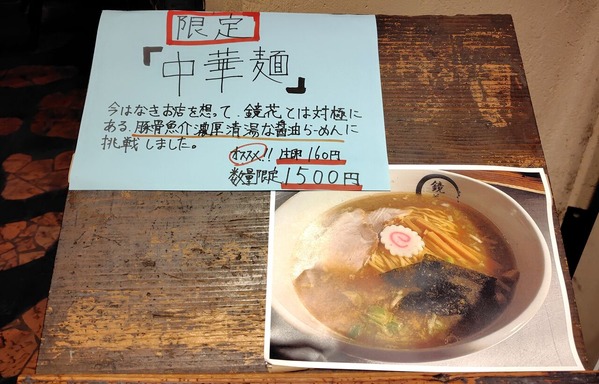 限定
『中華麺』
今はなきお店を想って、鏡花とは対極に
ある、豚骨魚介濃厚清湯な醤油らーめんに
挑戦しました。
オススメ!! 生卵 160円
数量限定 1500円
鏡